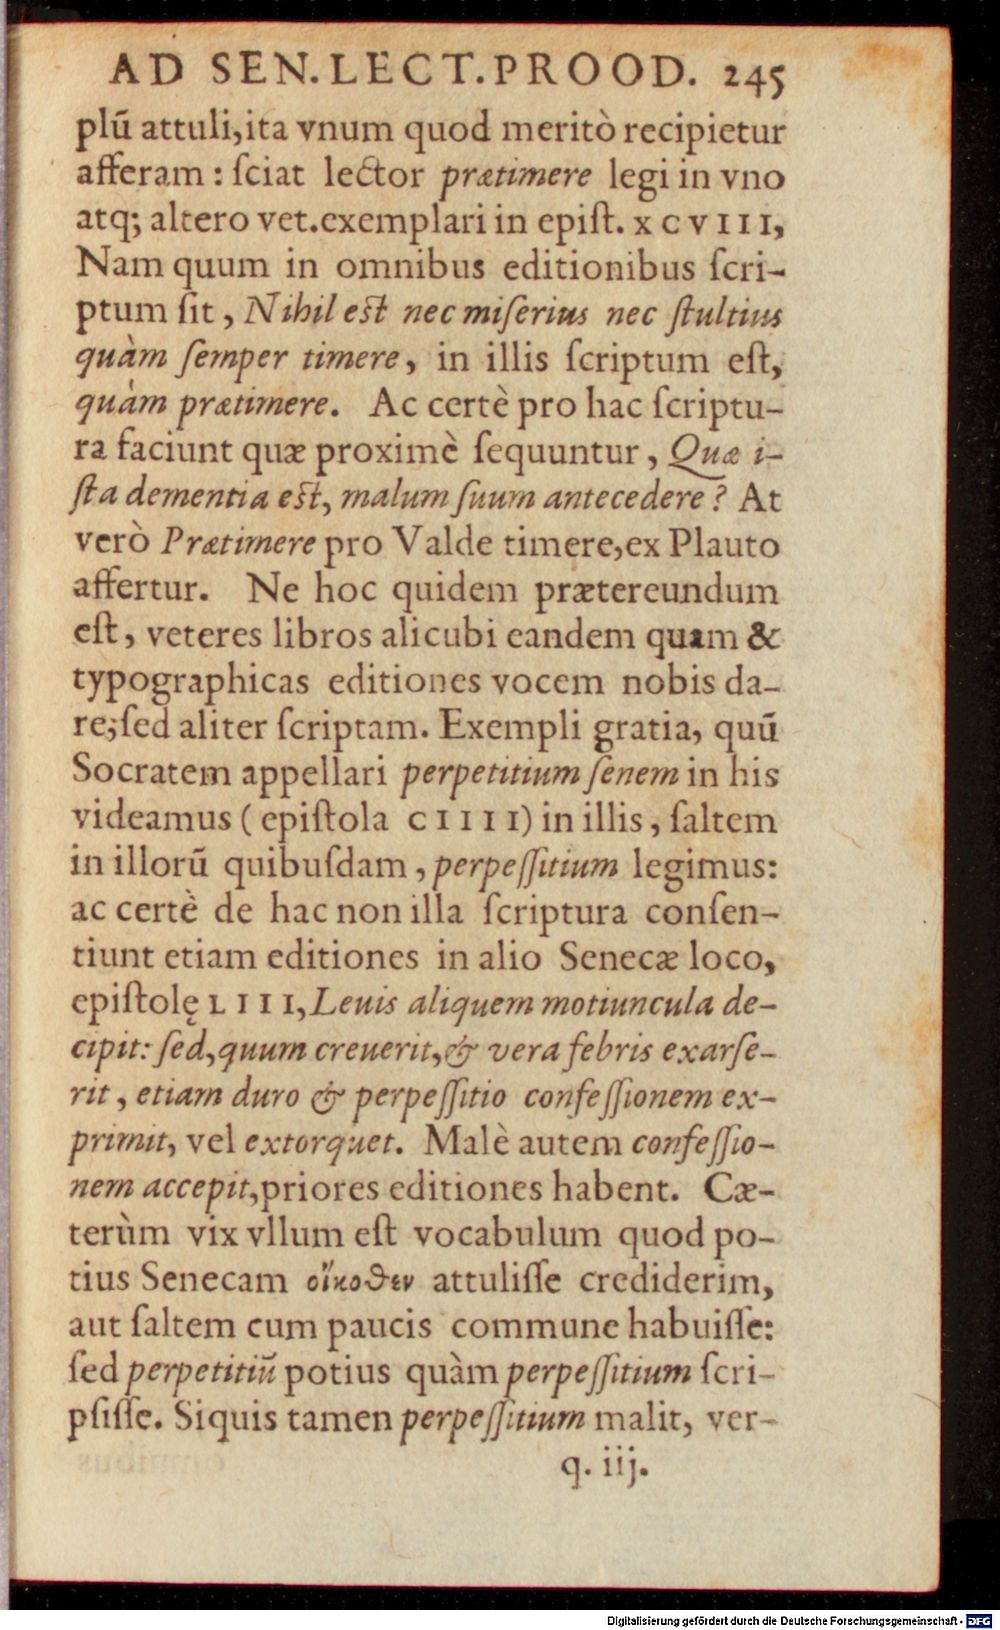 AD SEN.LECT.PROOD. 245
plū attuli,ita vnum quod meritò recipietur
afferam : ſciat lector prætimere legi in vno
atq; altero vet.exemplari in epiſt. XCVIII,
Nam quum in omnibus editionibus ſcri-
ptum ſit , Nihil eſt nec miſerius nec ſtultius
quàm ſemper timere, in illis ſcriptum eſt,
quàm prætimere. Ac certè pro hac ſcriptu-
ra faciunt quæ proximè ſequuntur , Quæ i-
ſta dementia eſt, malum ſuum antecedere ? At
verò Prætimere pro Valde timere,ex Plauto
affertur. Ne hoc quidem prætereundum
eſt, veteres libros alicubi eandem quam &
typographicas editiones vocem nobis da-
re;ſed aliter ſcriptam. Exempli gratia, quū
Socratem appellari perpetitium ſenem in his
videamus ( epiſtola CIIII) in illis, ſaltem
in illorū quibuſdam , perpeſſitium legimus:
ac certè de hac non illa ſcriptura conſen-
tiunt etiam editiones in alio Senecæ loco,
epiſtolę LIII, Leuis aliquem motiuncula de-
cipit: ſed,quum creuerit,& vera febris exarſe-
rit, etiam duro & perpeſſitio confeſſionem ex-
primit, vel extorquet. Malè autem confeſſio-
nem accepit,priores editiones habent. Cæ-
terùm vix vllum eſt vocabulum quod po-
tius Senecam οἴκοθεν attuliſſe crediderim,
aut ſaltem cum paucis commune habuiſſe:
ſed perpetitiū potius quàm perpeſſitium ſcri-
pſiſſe. Siquis tamen perpeſſitium malit, ver-
q. iij.
Digitalisierung gefördert durch die Deutsche Forschungsgemeinschaft - DFG